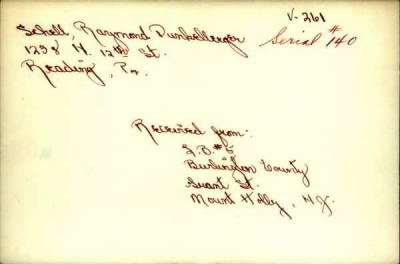 V-261
Schell, Raymond Dunkelberger
Serial #140
1239 N. 12th St.
Reading, Pa.
Received from:
L.B. #5
Burlington County
Grant St.
Mount Holly, N.J.